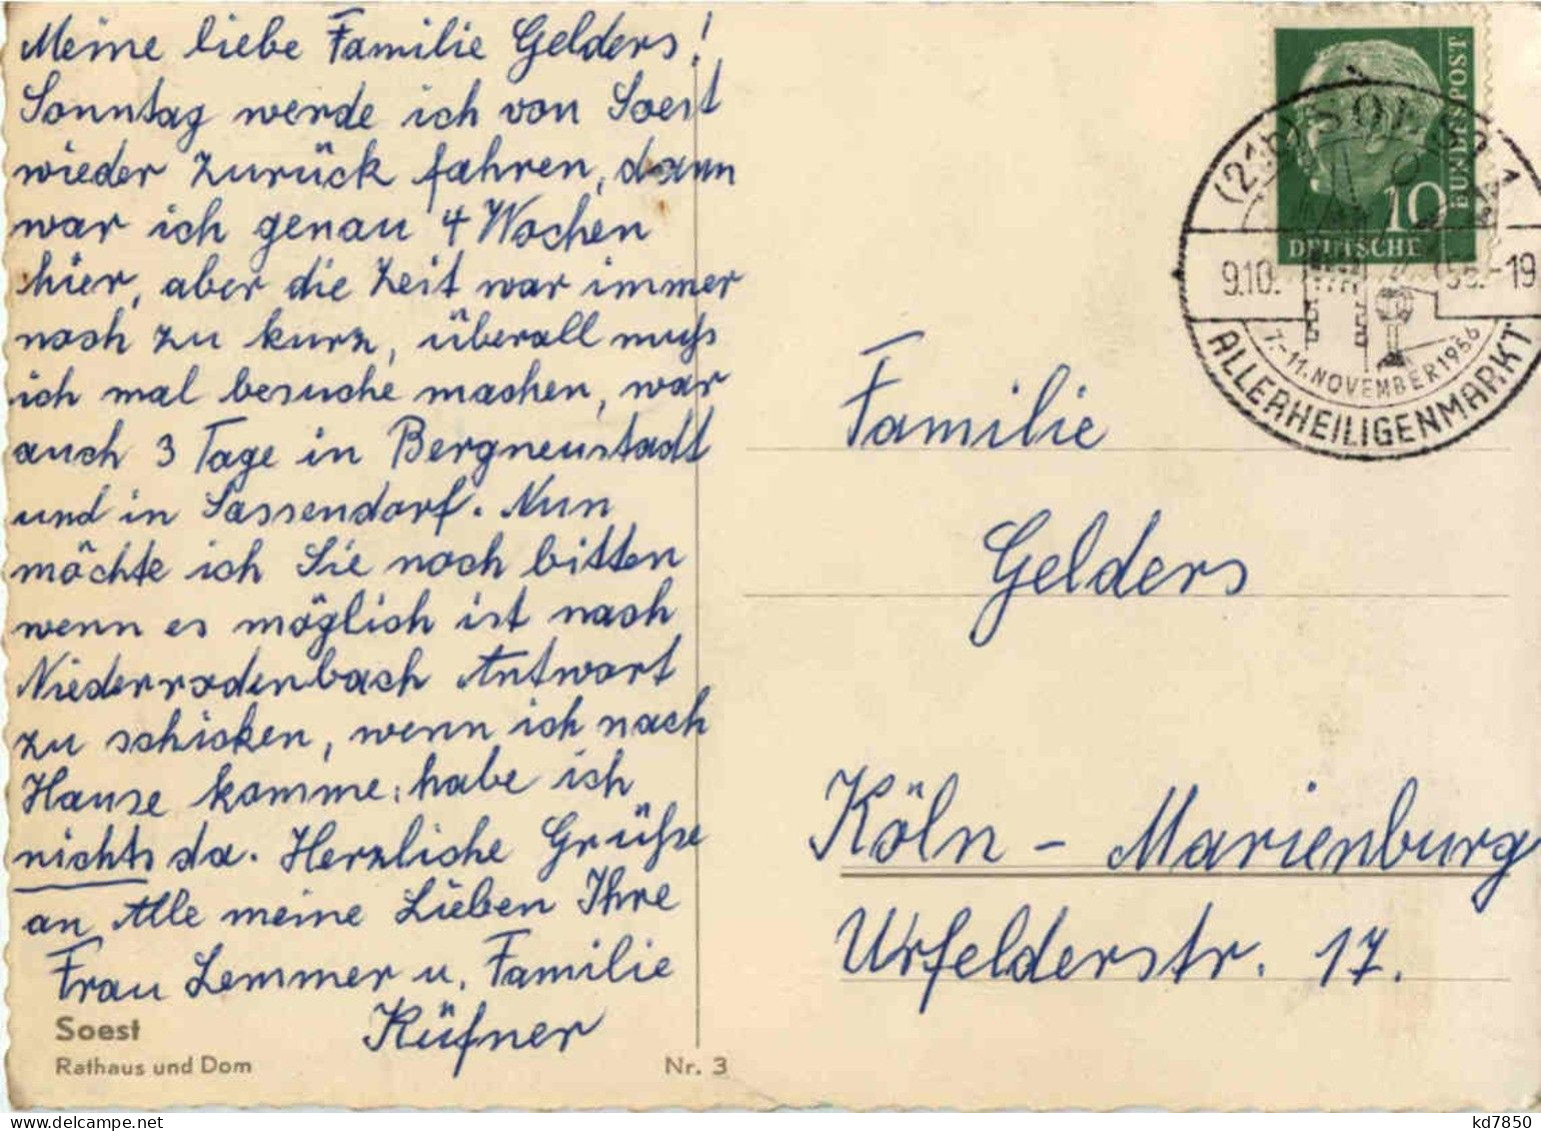 Meine liebe Familie Gelders!
Sonntag werde ich von Soest
wieder zurück fahren, dann
war ich genau 4 Wochen
hier, aber die Zeit war immer
noch zu kurz, überall muß
ich mal besuche machen, war
auch 3 Tage in Bergneustadt
und in Sassendorf. Nun
möchte ich Sie noch bitten
wenn es möglich ist nach
Niederrodenbach Antwort
zu schicken, wenn ich nach
Hause komme habe ich
nichts da. Herzliche Grüße
an Alle meine Lieben Ihre
Frau Lemmer u. Familie
Küfner
Soest
Rathaus und Dom
Nr. 3
BUNDESPOST
10
DEUTSCHE
(21b) SOEST 1
9.10.56.-19
7.-11. NOVEMBER 1956
ALLERHEILIGENMARKT
Familie
Gelders
Köln - Marienburg
Urfelderstr. 17.
kd7850